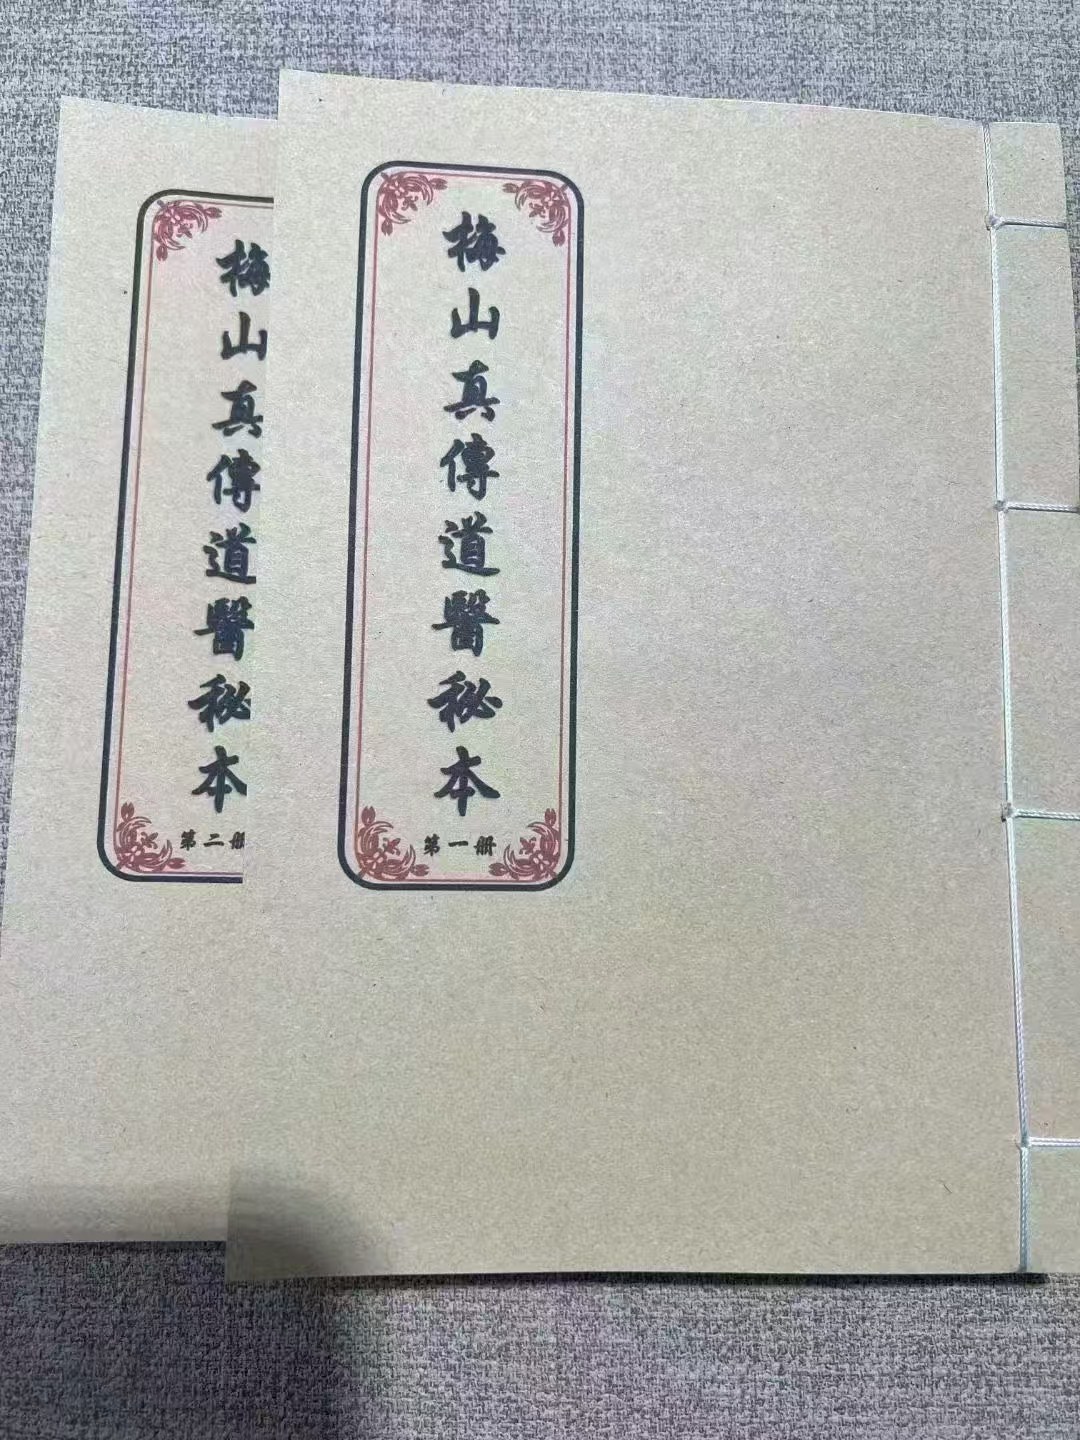 梅山真傳道醫秘本
第一册
梅山真傳道醫秘本
第二册